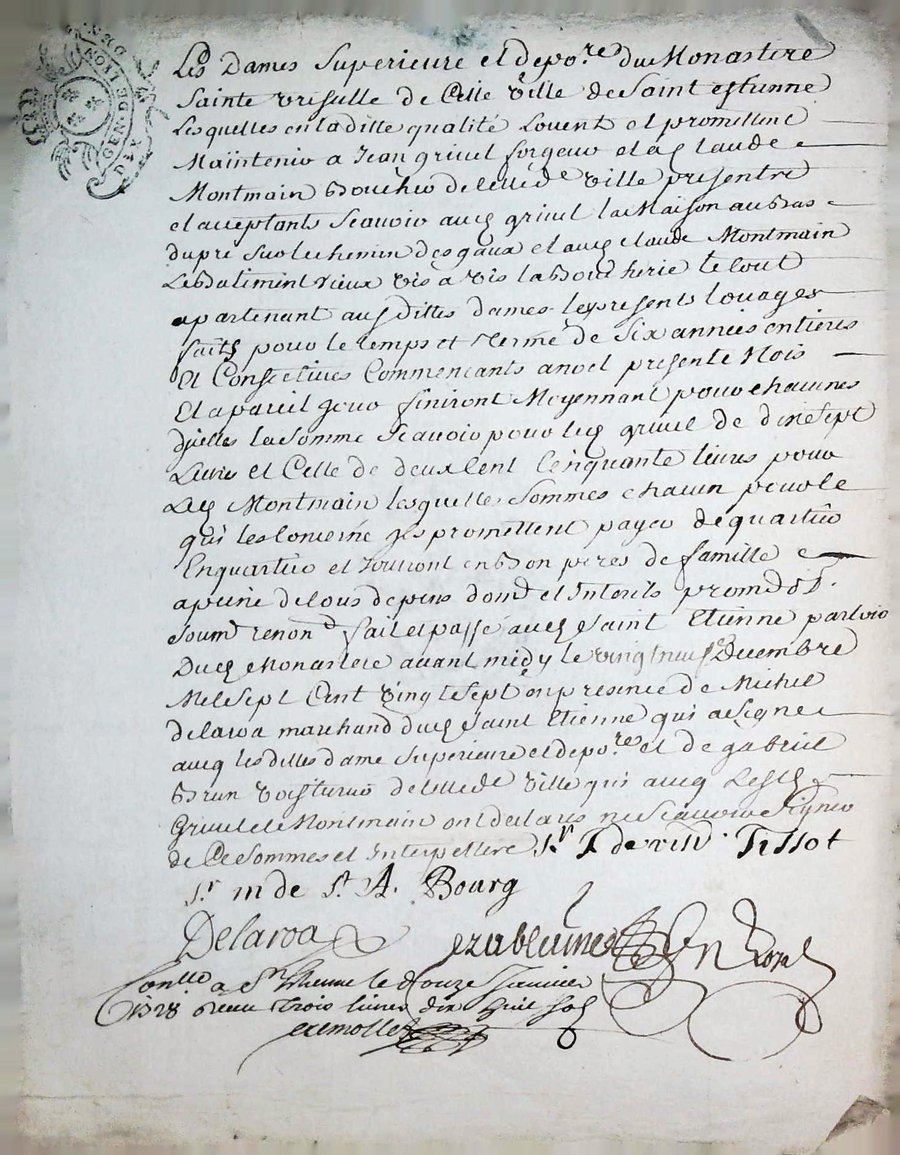 GEN. DE LYON
DIX
Les Dames Superieure et depo.res du Monastere
Sainte Ursulle de Cette Ville de Saint estienne
Lesquelles en laditte qualité Louent et promettent
Maintenir a Jean grivel forgeur et a Sr Claude
Montmain Boucher de lade Ville presentre
et acceptants Scavoir audt grivel la Maison au bas
du pré sur le chemin des gaux et audt Claude Montmain
Le batiment vieux vis a vis la boucherie le tout
apartenant ausdittes dames les presents louages
faits pour le temps et terme de Six années entieres
Et Consecutives Commencants a noel present Mois
Et a pareil jour finiront Moyennant pour chacunes
dicelles la somme Scavoir pour ledt grivel de dixsept
Livres et Celle de deux Cent Cinquante livres pour
Ledt Montmain lesquelles Sommes chacun pour le
qui les Concerne ils promettent payer de quartier
En quartier et Jouiront en bon peres de famille
a peine de tous depens dom.s et Interets prom. obl.
soum. renon. fait et passé audt Saint Etienne parloir
Dudt Monastere avant midy le vingt neuf Decembre
Mil Sept Cent vingt Sept en presence de Michel
delaroa marchand dudt Saint Etienne qui a Signé
avec lesdittes dame Superieure et depo.res et de gabriel
brun voiturier de lade ville qui avec Lesdts
Grivel et Montmain ont declarés ne Scavoir Signer
de Ce Sommes et Interpellere Sr Tissot
Sr m de St A. Bourg
Delaroa
Conllé a St Etienne le douze Janvier
1728 Receu trois livres dix huit sols